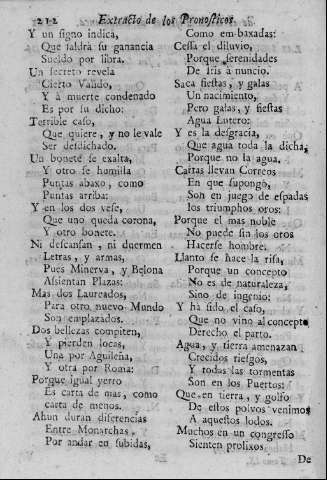 212 Extracto de los Pronosticos
Y un signo indica,
Que saldrà su ganancia
Sueldo por libra.
Un secreto revela
Cierto Valido,
Y à muerte condenado
Es por su dicho:
Terrible caso,
Que quiere, y no le vale
Ser desdichado.
Un bonete se exalta,
Y otro se humilla
Puntas abaxo, como
Puntas arriba:
Y en los dos vese,
Que uno queda corona,
Y otro bonete.
Ni descansan, ni duermen
Letras, y armas,
Pues Minerva, y Belona
Assientan Plazas:
Mas dos Laureados,
Para otro nuevo Mundo
Son emplazados.
Dos bellezas compiten,
Y pierden locas,
Una por Aguileña,
Y otra por Roma:
Porque igual yerro
Es carta de mas, como
carta de menos.
Ahun duran diferencias
Entre Monarchas,
Por andar en subidas,
Como em-baxadas:
Cessa el diluvio,
Porque serenidades
De Iris à nuncio.
Saca fiestas, y galas
Un nacimiento,
Pero galas, y fiestas
Agua Lutero:
Y es la desgracia,
Que agua toda la dicha,
Porque no la agua.
Cartas llevan Correos
En que supongo,
Son en juego de espadas
los triumphos oros:
Porque el mas noble
No puede sin los oros
Hacerse hombre.
Llanto se hace la risa,
Porque un concepto
No es de naturaleza,
Sino de ingenio:
Y hà sido el caso,
Que no vino al concepto
Derecho el parto.
Agua, y tierra amenazan
Crecidos riesgos,
Y todas las tormentas
Son en los Puertos:
Que en tierra, y golfo
De estos polvos venimos
A aquestos lodos.
Muchos en un congresso
Sienten prolixos
De